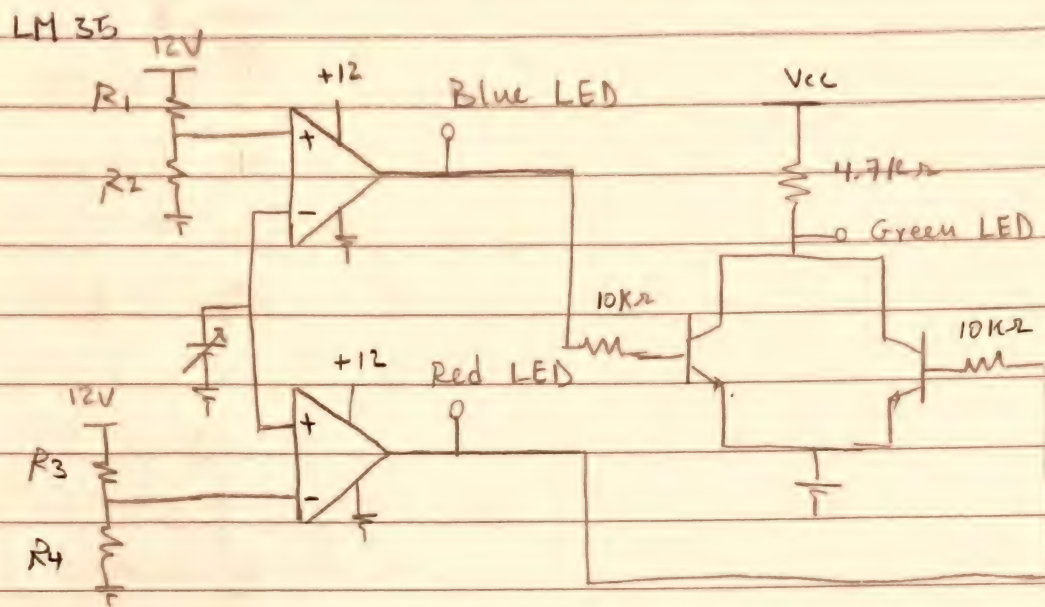 LM 35
12V
R1
R2
+12
Blue LED
+
-
Vcc
4.7KΩ
Green LED
10KΩ
10KΩ
+12
Red LED
12V
R3
R4
+
-